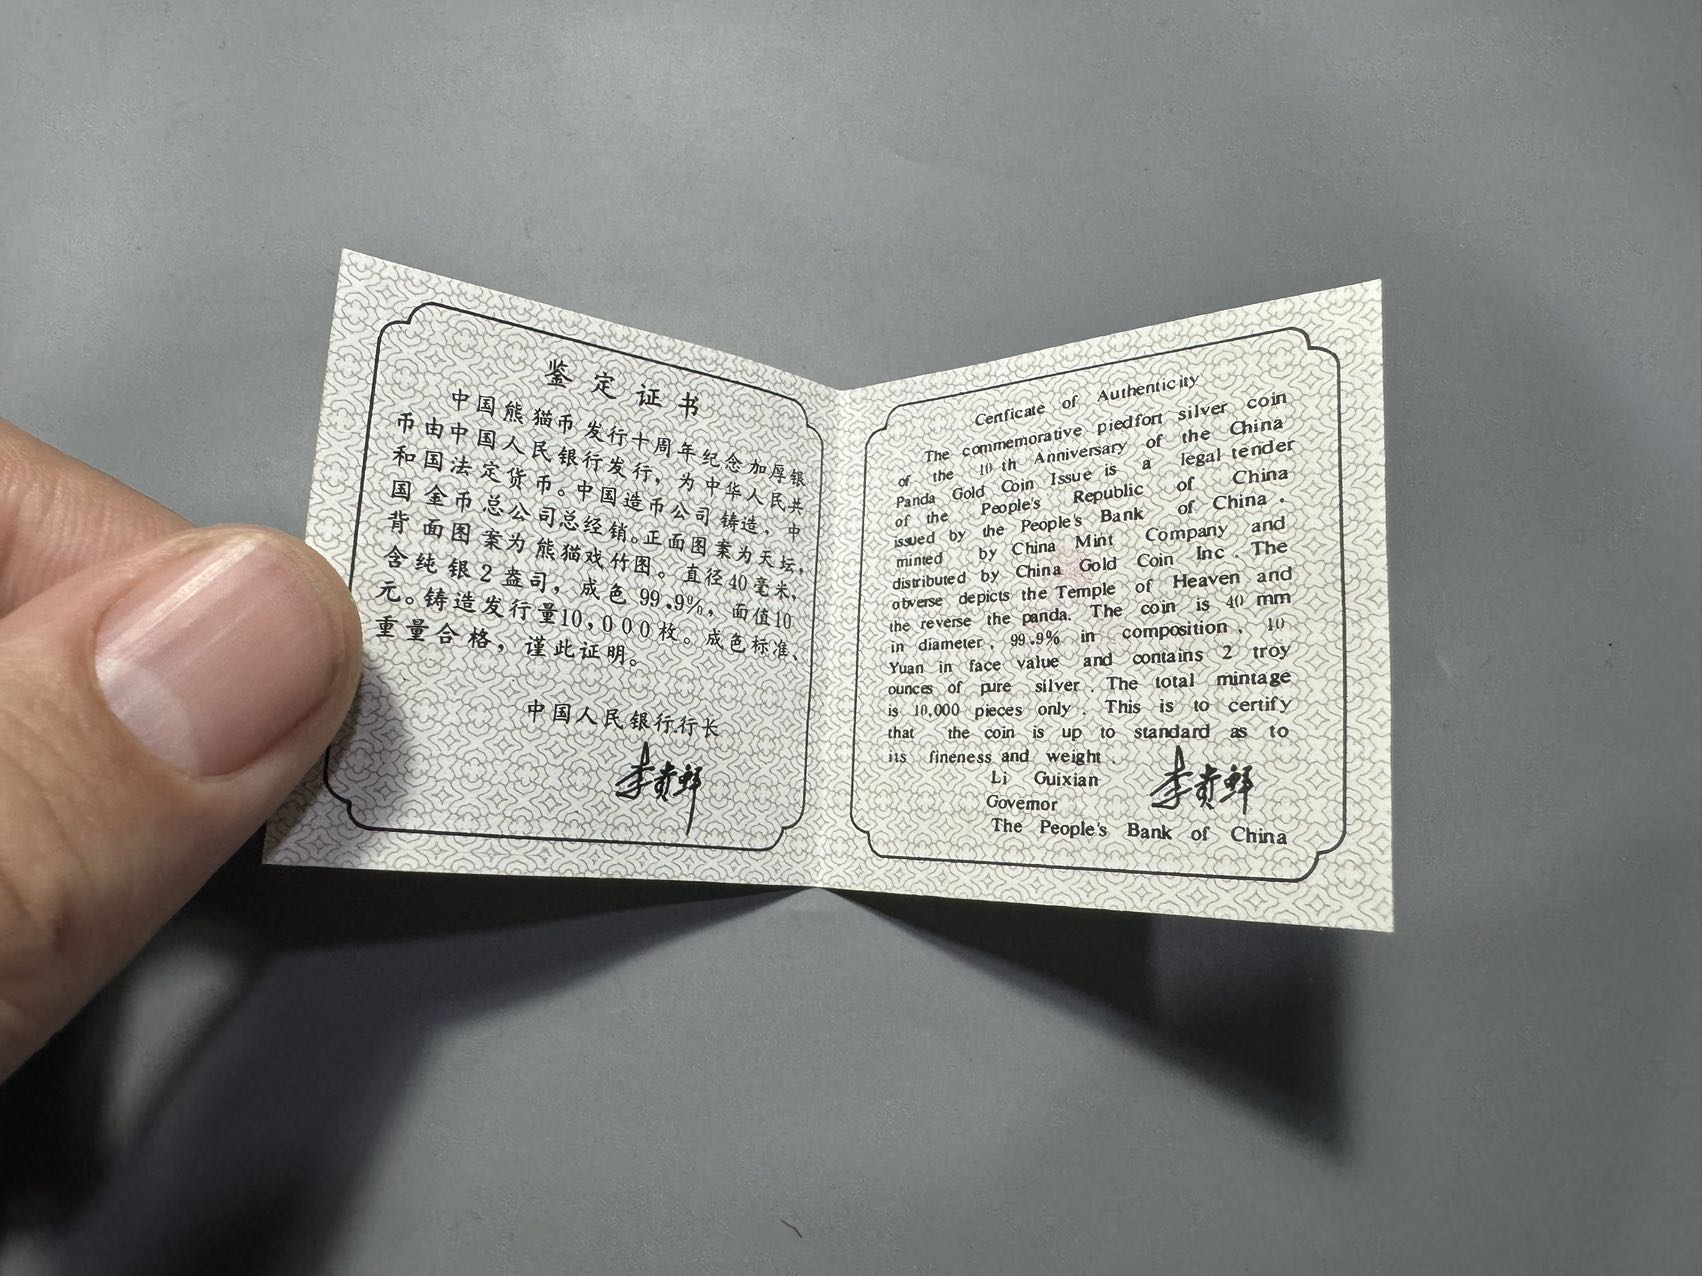 鉴定证书
中国熊猫币发行十周年纪念加厚银
币由中国人民银行发行，为中华人民共
和国法定货币。中国造币公司铸造，中
国金币总公司总经销。正面图案为天坛，
背面图案为熊猫戏竹图。直径40毫米，
含纯银2盎司，成色99.9%，面值10
元。铸造发行量10,000枚。成色标准、
重量合格，谨此证明。
中国人民银行行长
李贵鲜
Certificate of Authenticity
The commemorative piedfort silver coin
of the 10th Anniversary of the China
Panda Gold Coin Issue is a legal tender
of the People's Republic of China
issued by the People's Bank of China.
minted by China Mint Company and
distributed by China Gold Coin Inc. The
obverse depicts the Temple of Heaven and
the reverse the panda. The coin is 40 mm
in diameter, 99.9% in composition, 10
Yuan in face value and contains 2 troy
ounces of pure silver. The total mintage
is 10,000 pieces only. This is to certify
that the coin is up to standard as to
its fineness and weight.
Li Guixian
李贵鲜
Governor
The People's Bank of China